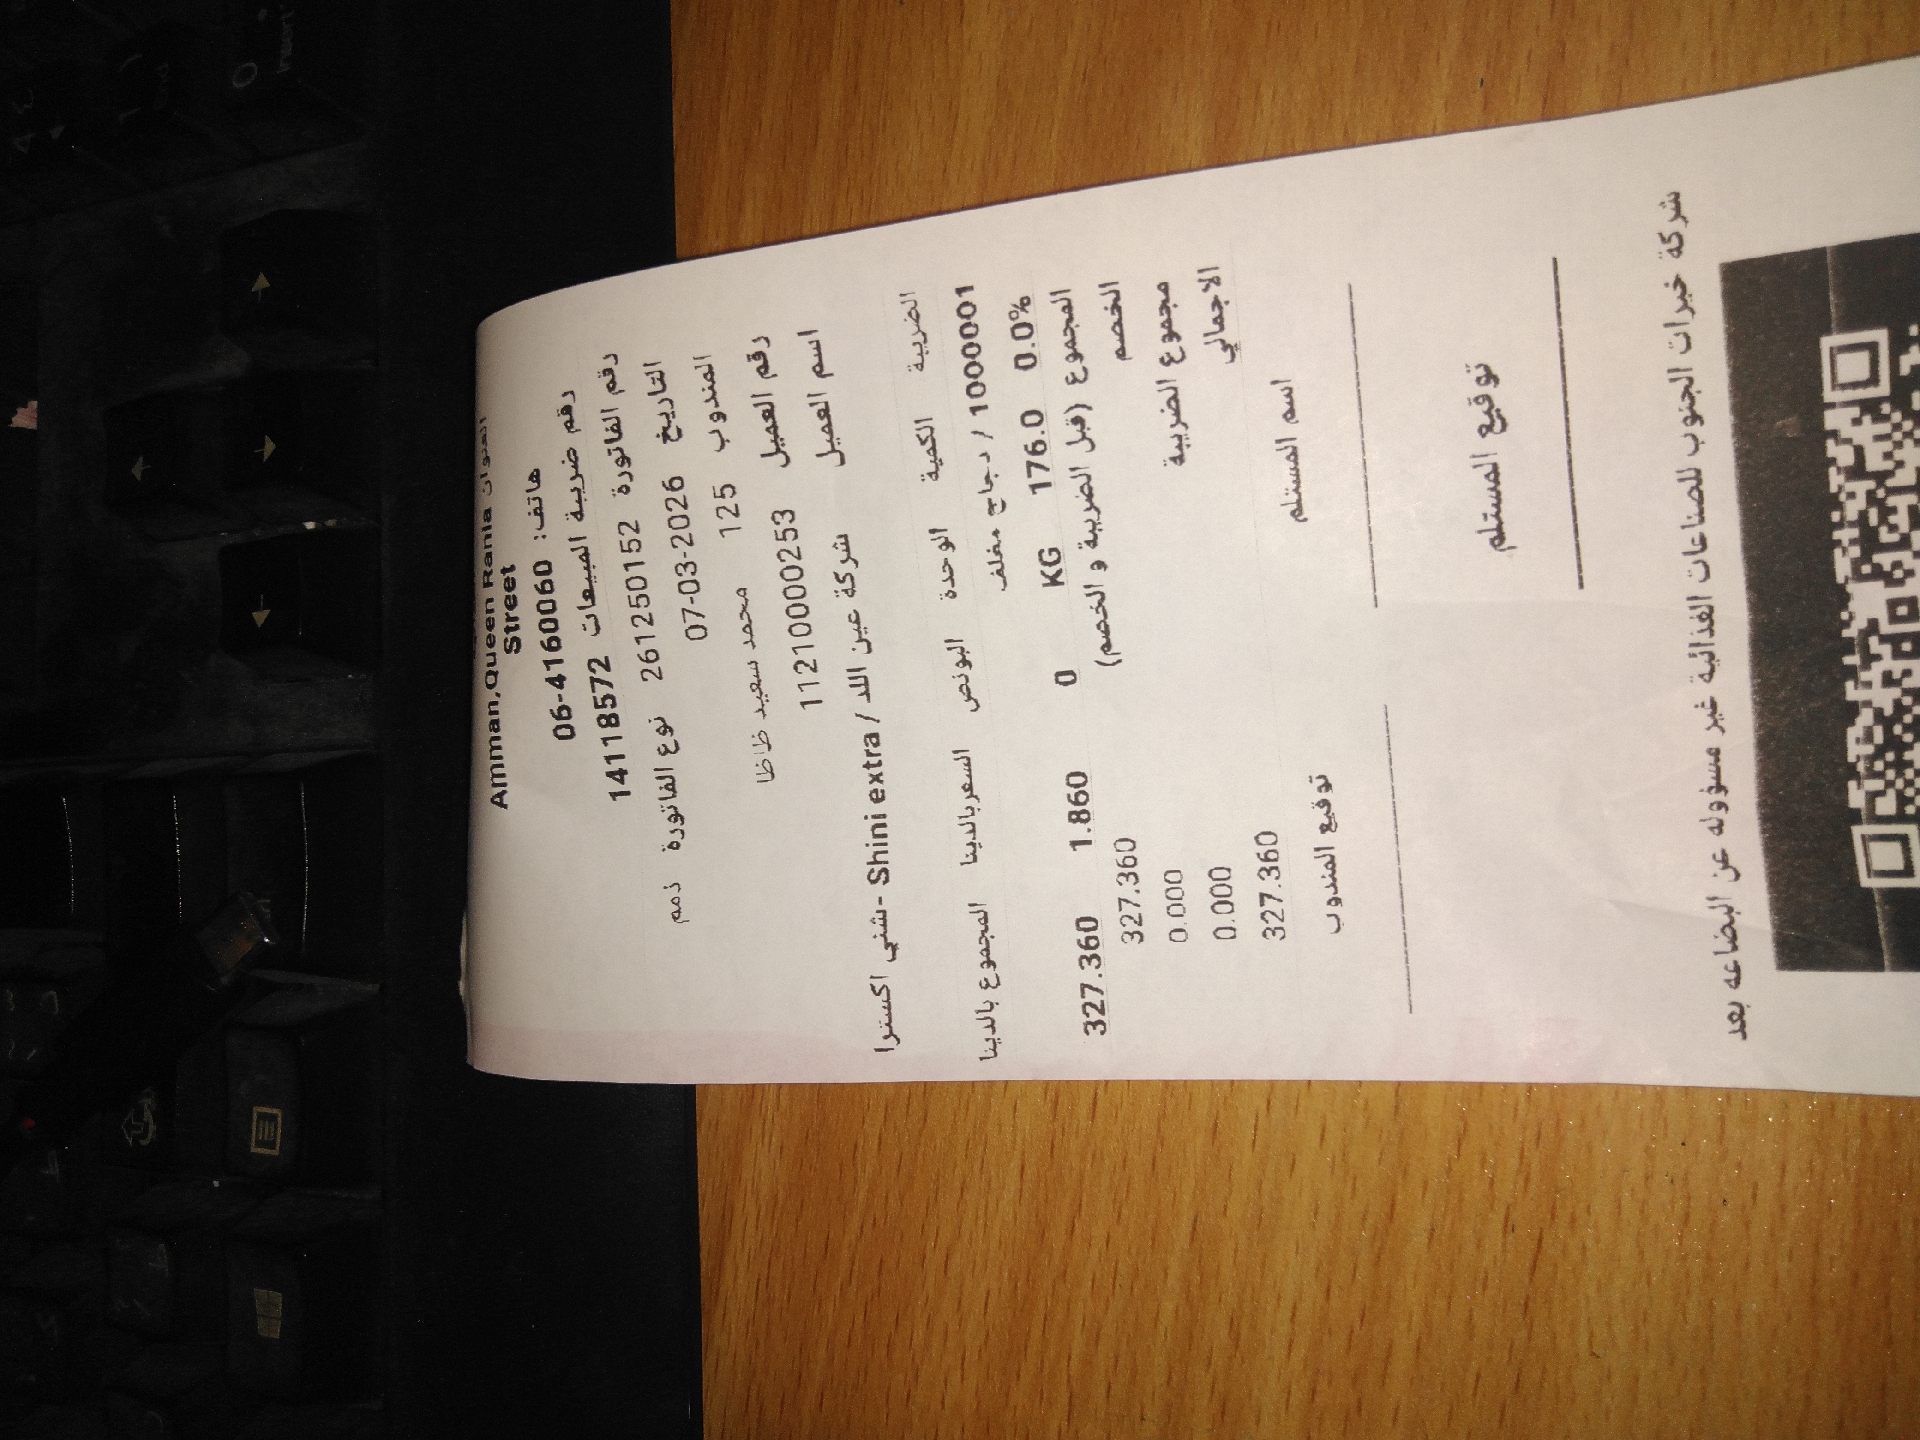 العنوان Amman,Queen Rania
Street
هاتف: 06-4160060
رقم ضريبة المبيعات 14118572
رقم الفاتورة 26125\0152 نوع الفاتورة ذمم
التاريخ 07-03-2026
المندوب 125 محمد سعيد ظاظا
رقم العميل 1121000\0253
اسم العميل شركة عين اللد / Shini extra -شني اكسترا
الضريبة الكمية الوحدة البونص السعربالدينا المجموع بالدينا
1000001 / دجاج مغلف
0.0% 176.0 KG 0 1.860 327.360
المجموع (قبل الضريبة و الخصم) 327.360
الخصم 0.000
مجموع الضريبة 0.000
الاجمالي 327.360
اسم المستلم توقيع المندوب
توقيع المستلم
شركة خيرات الجنوب للصناعات الغذائية غير مسؤوله عن البضاعه بعد